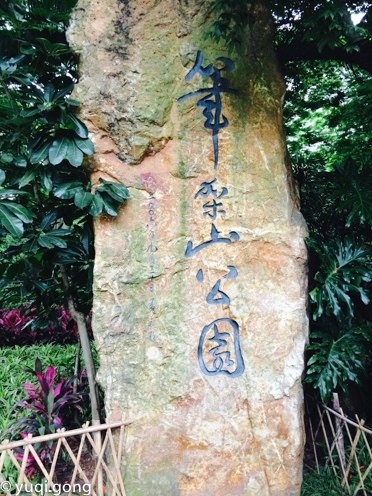 筆架山公園
©yuqi.gong